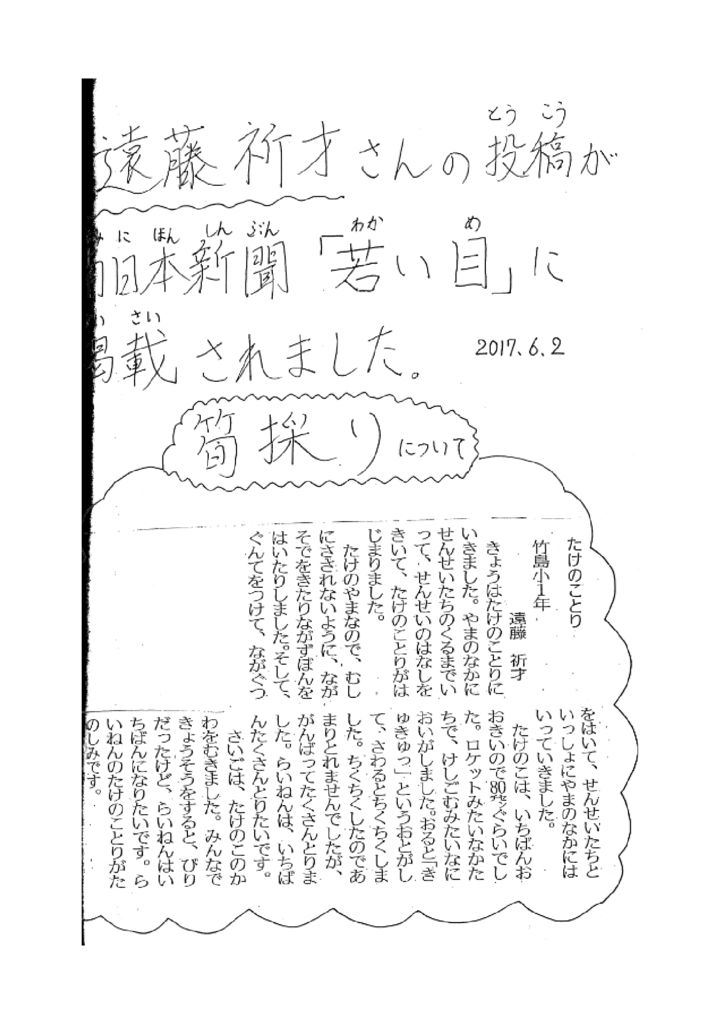 遠藤祈才さんの投稿が
とうこう
日本新聞「若い目」に
みにほんしんぶん
わか
め
掲載されました。
いさい
2017.6.2
筍採りについて
たけのことり
竹島小1年
遠藤 祈才
きょうはたけのことりに
いきました。やまのなかに
せんせいたちのくるまでい
って、せんせいのはなしを
きいて、たけのことりがは
じまりました。
たけのやまなので、むし
にさされないように、なが
そでをきたりながずぼんを
はいたりしました。そして、
ぐんてをつけて、ながぐつ
をはいて、せんせいたちと
いっしょにやまのなかには
いっていきました。
たけのこは、いちばんお
おきいので80㌢ぐらいでし
た。ロケットみたいなかた
ちで、けしごむみたいなに
おいがしました。おると「ぎ
ゅきゅっ」というおとがし
て、さわるとちくちくしま
した。ちくちくしたのであ
まりとれませんでしたが、
がんばってたくさんとりま
した。らいねんは、いちば
んたくさんとりたいです。
さいごは、たけのこのか
わをむきました。みんなで
きょうそうをすると、びり
だったけど、らいねんはい
ちばんになりたいです。ら
いねんのたけのことりがた
のしみです。